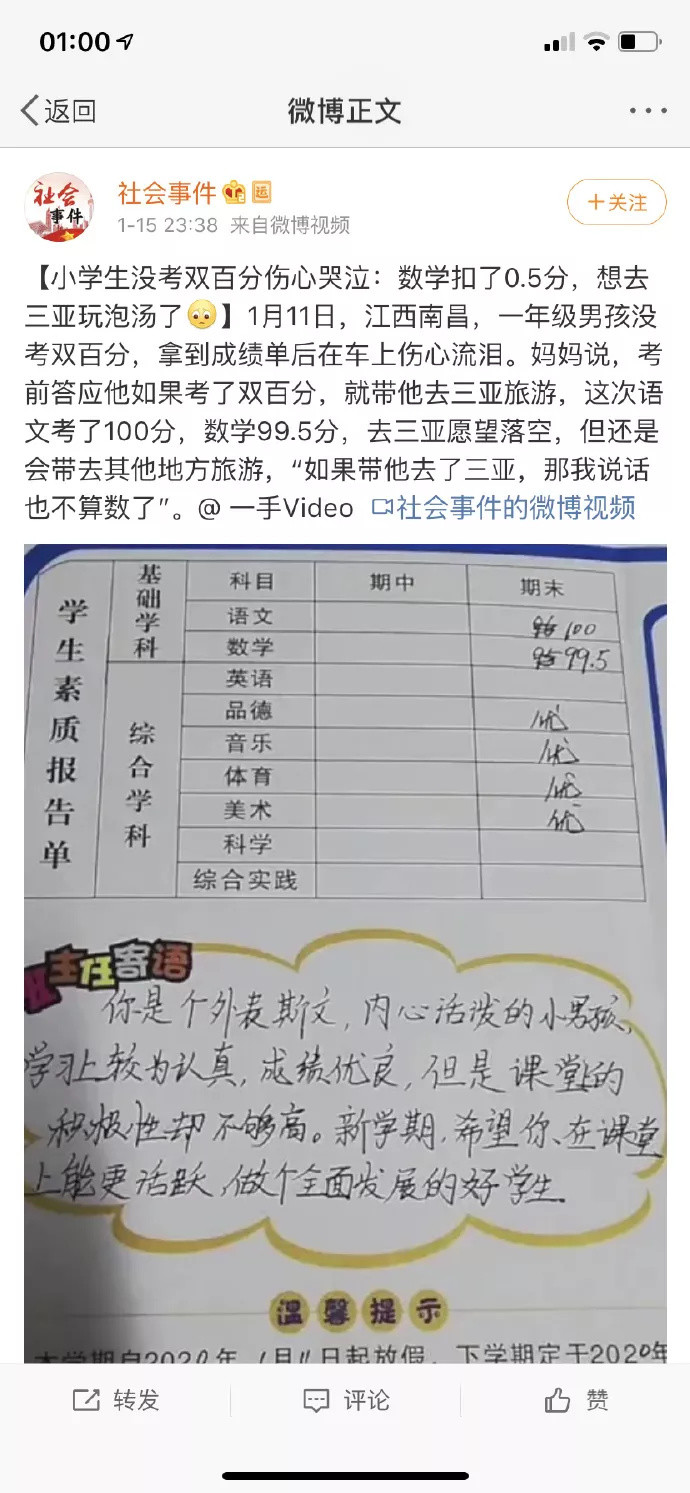 01:00
返回
微博正文
社会事件
社会事件
运
+关注
1-15 23:38 来自微博视频
【小学生没考双百分伤心哭泣：数学扣了0.5分，想去
三亚玩泡汤了🥺】1月11日，江西南昌，一年级男孩没
考双百分，拿到成绩单后在车上伤心流泪。妈妈说，考
前答应他如果考了双百分，就带他去三亚旅游，这次语
文考了100分，数学99.5分，去三亚愿望落空，但还是
会带去其他地方旅游，“如果带他去了三亚，那我说话
也不算数了”。@ 一手Video 社会事件的微博视频
学生素质报告单
基础学科
科目 期中 期末
语文 100
数学 99.5
综合学科
英语
品德 优
音乐 优
体育 优
美术 优
科学
综合实践
班主任寄语
你是个外表斯文，内心活泼的小男孩，
学习上较为认真，成绩优良，但是课堂的
积极性却不够高。新学期，希望你在课堂
上能更活跃，做个全面发展的好学生。
温馨提示
本学期自2020年1月11日起放假，下学期定于2020年
转发
评论
赞